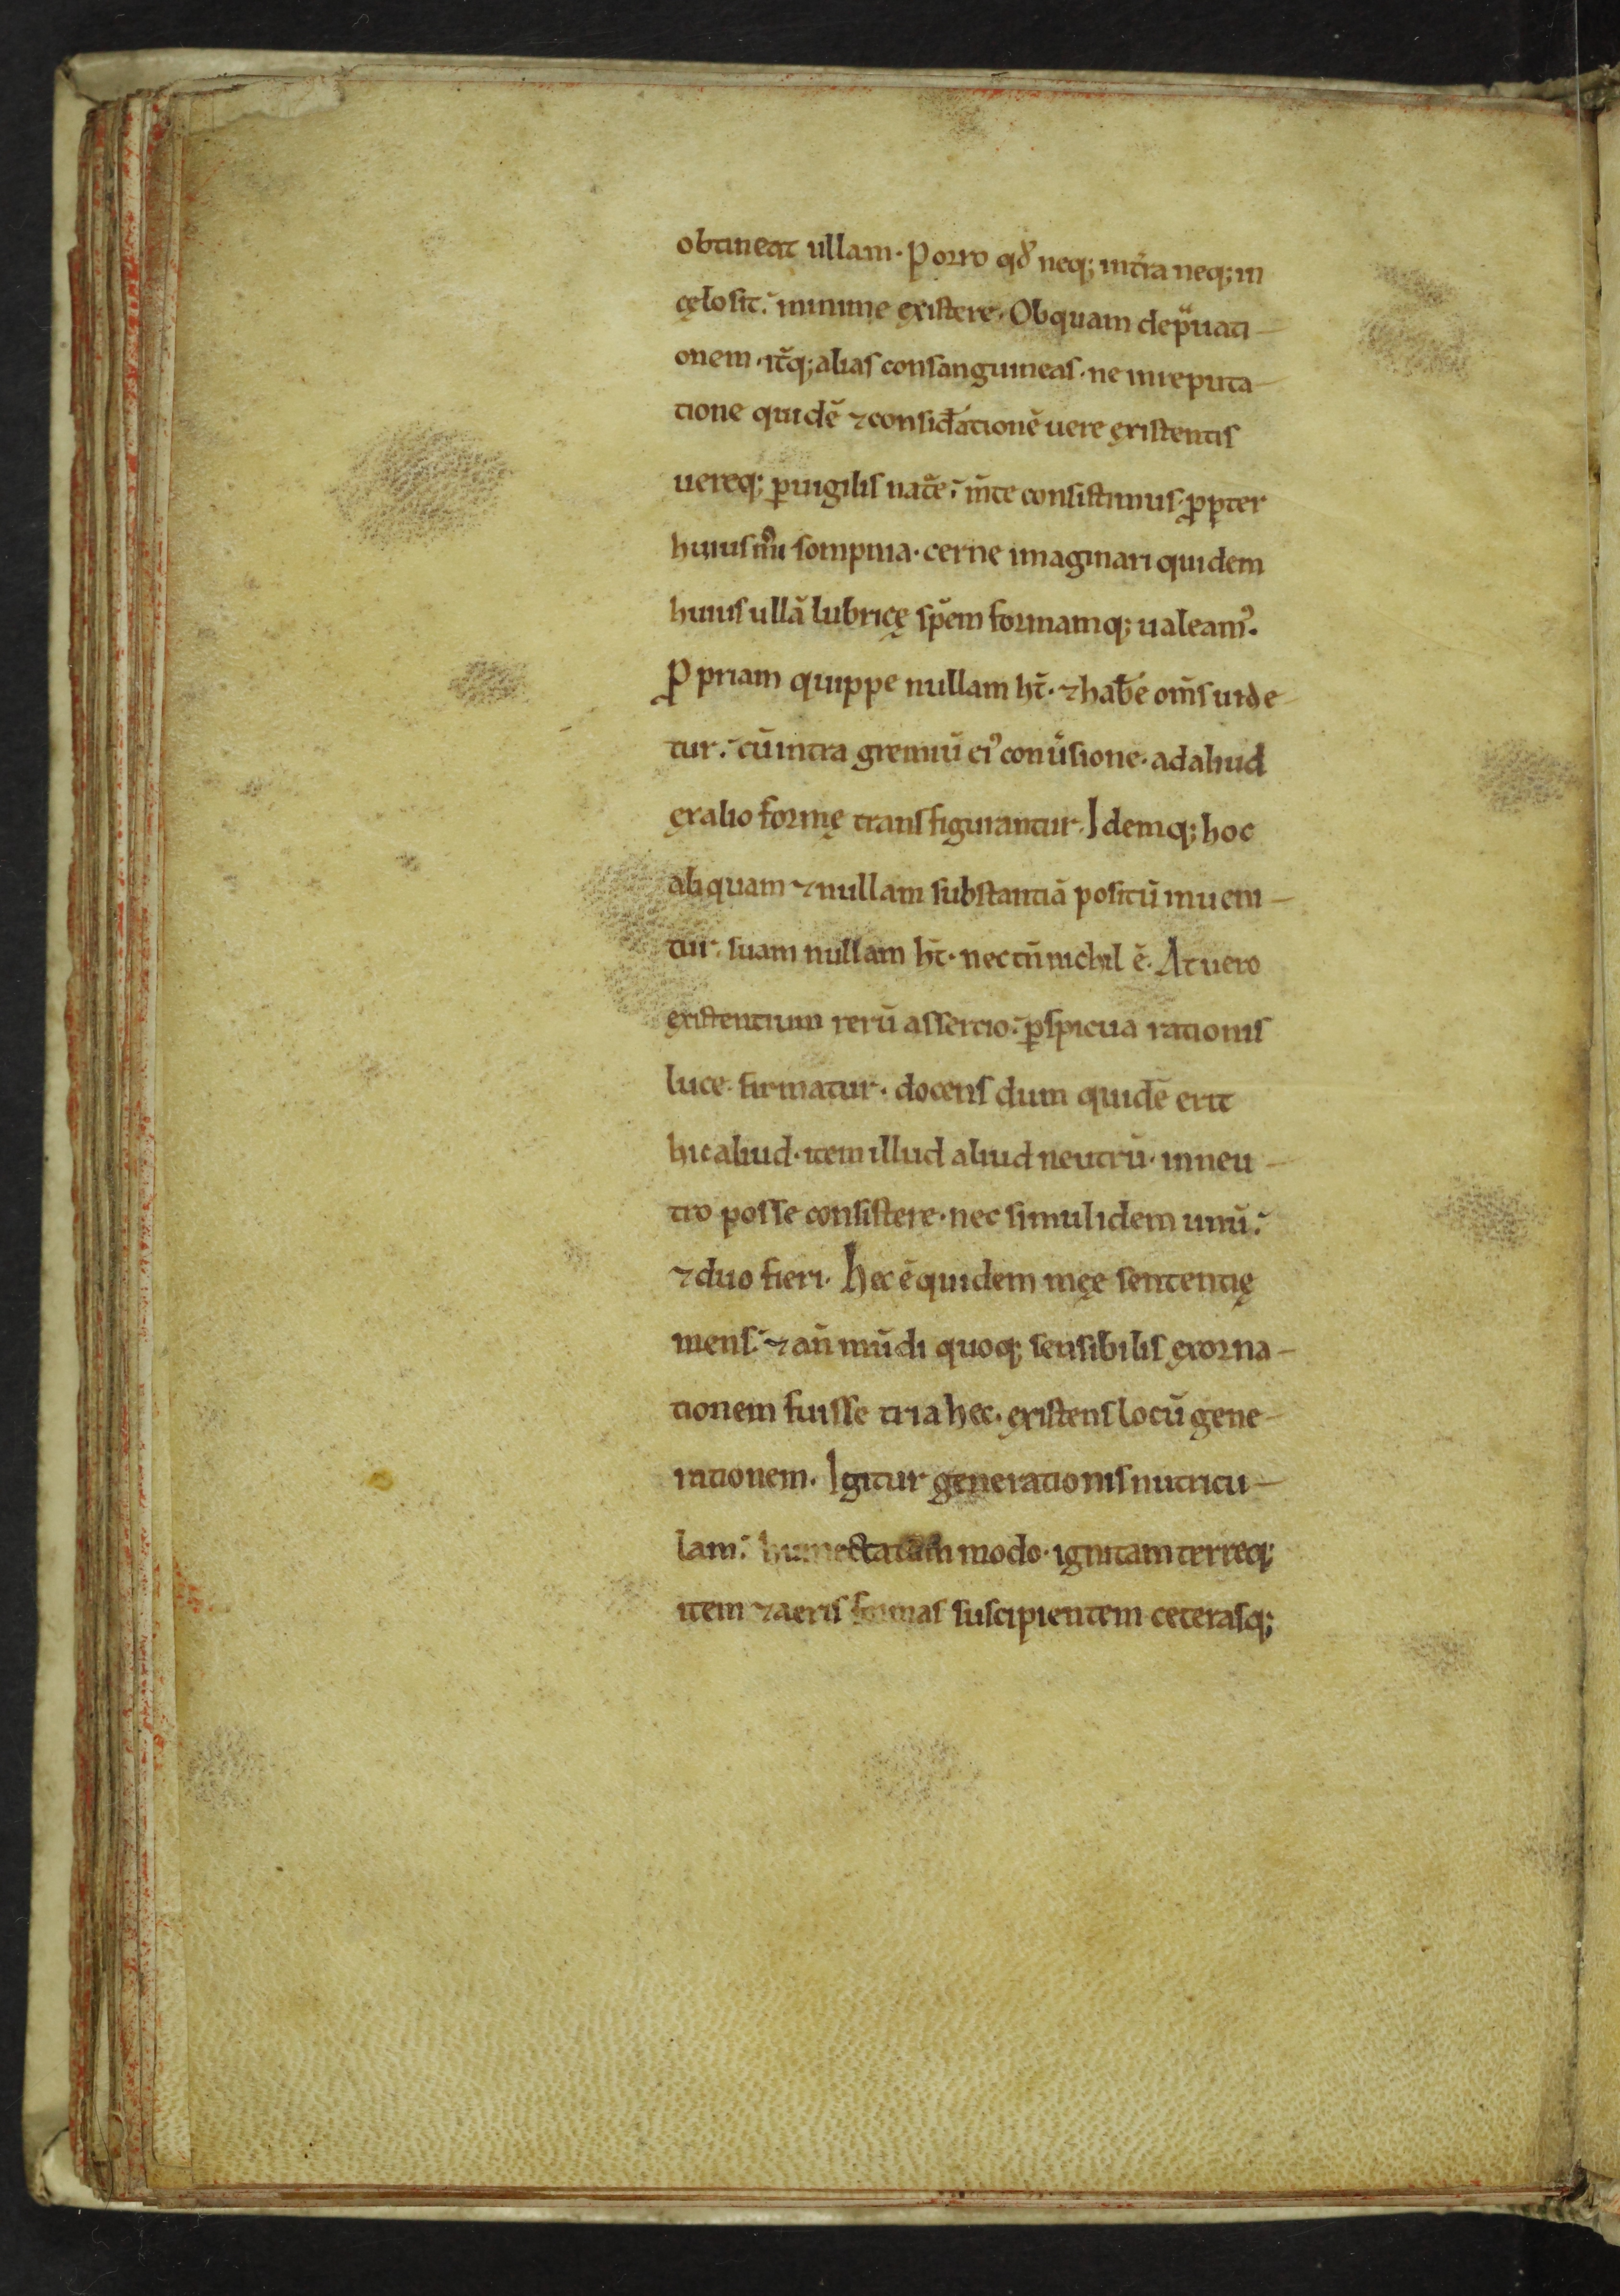 obtineat ullam. Porro qđ neq; int̃ra neq; in
cęlo sit: minime ęxistere. Ob quam dep̃uati-
onem. itq̃; alias consanguineas. ne in reputa-
tione quidẽ ⁊ consid̃ationẽ uere ęxistentis
uereq; ꝑuigilis nat̃e: m̃te consistimus. ꝓpter
huiusm̊i sompnia. cerne imaginari quidem
huius ullã lubricę sp̃em formamq; ualeam᾿.
Ꝓpriam quippe nullam ht̃. ⁊ hab̃e om̃s uide
tur: cũ intra gremiũ ei᾿ conũsione. ad aliud
ęx alio formę transfigurantur. Idemq; hoc
aliquam ⁊ nullam substantiã positũ inueni-
tur. suam nullam ht̃. nec tñ nichil ẽ. At uero
ęxistentium rerũ assertio: ꝑspicua rationis
luce firmatur. docens dum quidẽ erit
hic aliud. item illud aliud neutrũ. in neu-
tro posse consistere. nec simul idem unũ:
⁊ duo fieri. Hec ẽ quidem męe sententię
mens: ⁊ añ mũdi quoq; sensibilis ęxorna-
tionem fuisse tria hec. ęxistens locũ gene-
rationem. Igitur generationis nutricu-
lam: humectatam modo. ignitam terreq;
item ⁊ aeris formas suscipientem ceterasq;